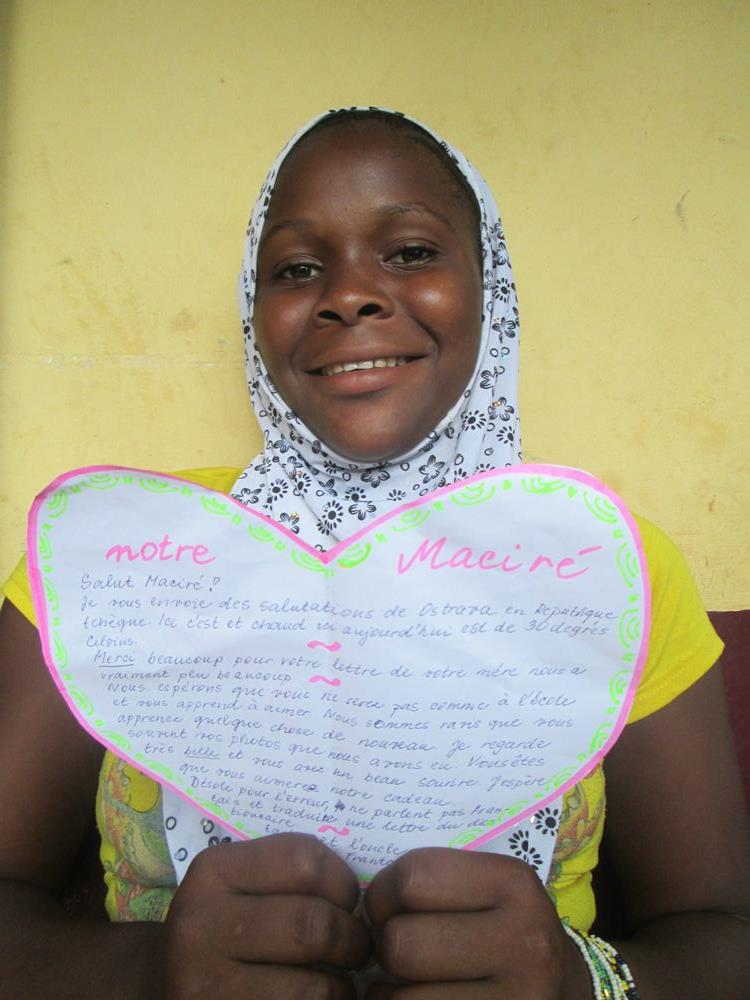 notre Maciré
Salut Maciré!
Je vous envoie des salutations de Ostrava en République
tchèque. Ici c'est et chaud ici aujourd'hui est de 30 degrés
Celsius.
Merci beaucoup pour votre lettre de votre mére nous a
vraiment plu beaucoup
Nous espérons que vous ne serez pas comme à l'école
et vous apprend à aimer. Nous sommes ravis que vous
apprenez quelque chose de nouveau. Je regarde
souvent vos photos que nous avons eu. Vous êtes
très belle et vous avez un beau sourire. J'espère
que vous aimerez notre cadeau.
Désolé pour l'erreur, ne partent pas fran-
çais et traduire une lettre du dic-
tionnaire
et l'oncle